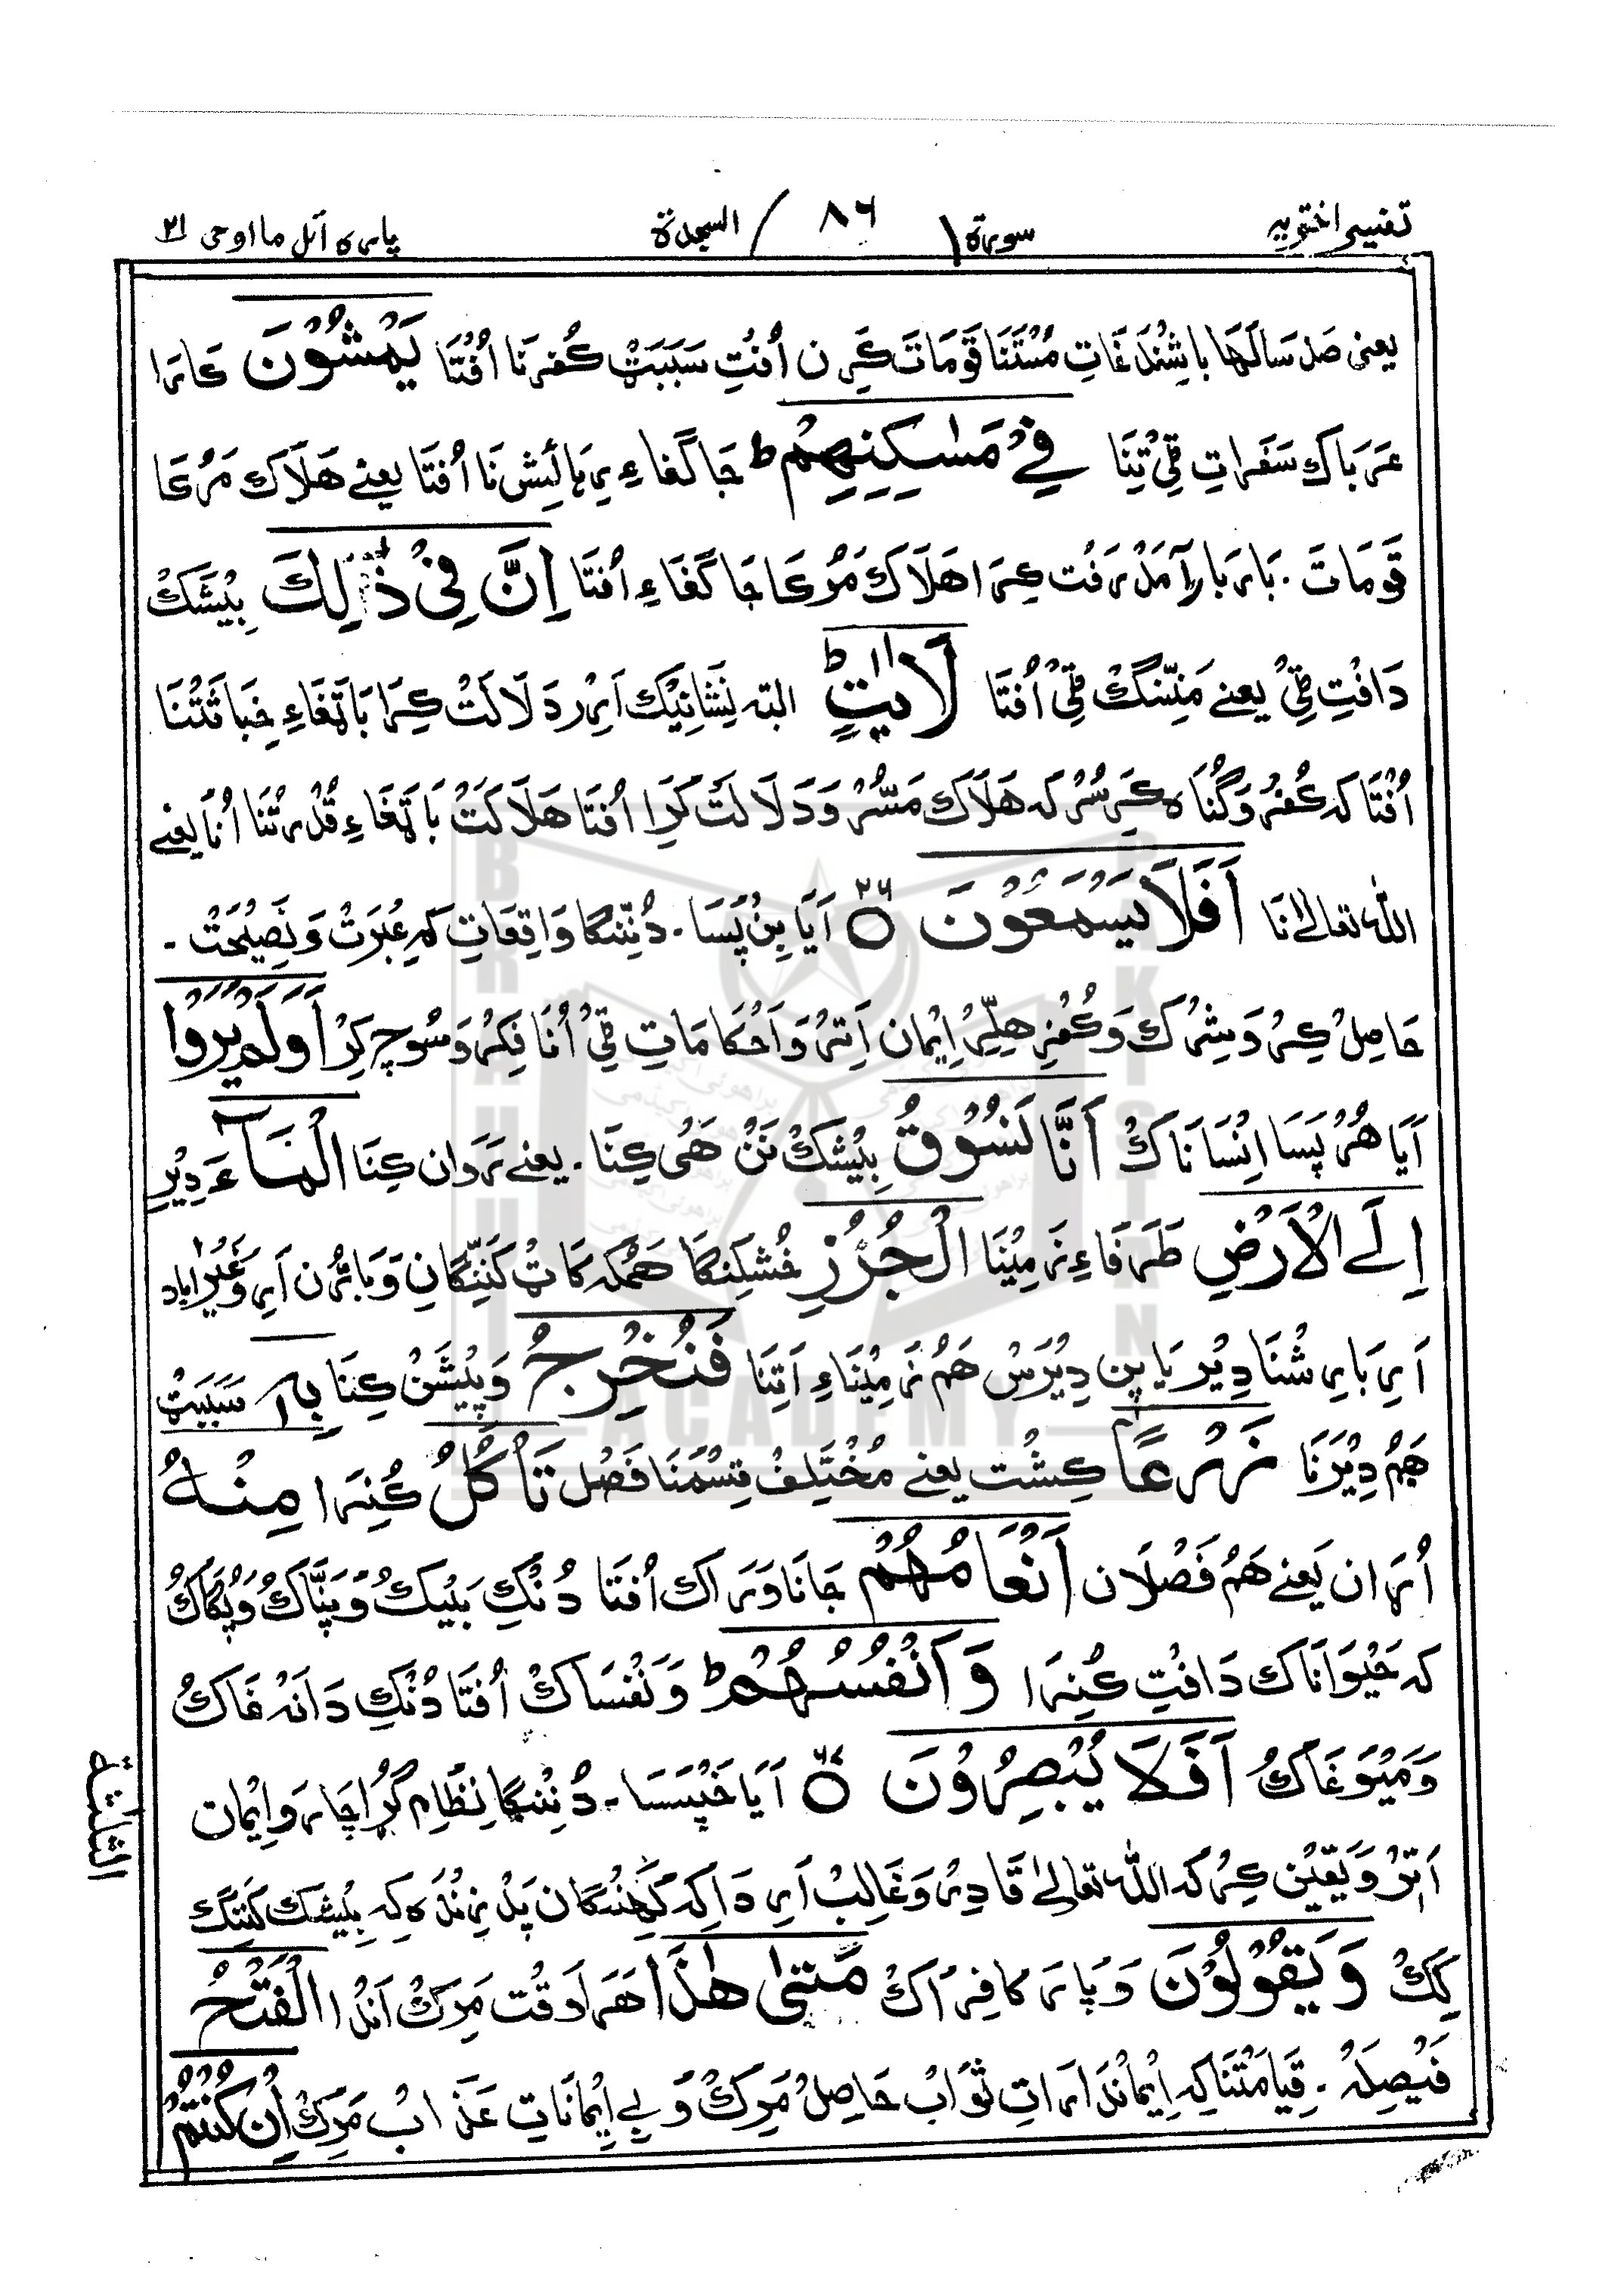 تفسیر اختریہ سورۃ ٨٦ السجدۃ پارہ اتل ما اوحی ٢١
یعنی صد سالہا باشندَغَاتِ مُسْتَنَا قَوْمَاتَ کَرِن اُفْتِ سَبَبَتْ کُفرنَا اُفْتَا یَمْشُوْنَ کَارَا
عَرَبَاک سَفَرَاتِ ٹِیْ تِنَا فِیْ مَسٰکِنِهِمْ ط جَاگَغَاءِ رِہَائِشْ نَا اُفْتَا یعنے هَلَاک مَرُکَا
قَوْمَاتَ ۔ بَار بَار آمَدْ رَفْت کِرَا هَلَاک مَرُکَا جَاگَغَاءِ اُفْتَا اِنَّ فِیْ ذٰلِكَ بِیْشَکْ
دَافْتِ ٹِیْ یعنے مَنِنْگ ٹِیْ اُفْتَا لَاٰیٰتٍ ط البتہ نِشَانِیْک اَرِر دَلَالَتْ کِرَا بَاتْغَاءِ خِبَاثَتْنَا
اُفْتَا کہ کُفْرُ وَ گُنَاہ کَرِسُر کہ هَلَاک مَسُّر وَ دَلَالَتْ کَرَا اُفْتَا هَلَاکَتْ بَاتْغَاءِ قُدْرَتْنَا اُنَا یعنے
اللہ تعالیٰ نَا اَفَلَا یَسْمَعُوْنَ ٢٦ اَیَا بِنْپَسَا ۔ دُنْنَگَا وَاقِعَاتِ کہ عِبْرَتْ وَ نَصِیْحَتْ ۔
حَاصِلْ کِرْ وَ شِرْک وَ کُفْرِ هِلِّرْ اِیْمَان اَتِرْ وَ اَحْکَامَاتِ ٹِیْ اُنَا فِکْرْ وَ سُوچ کِرْ اَوَلَمْ یَرَوْا
اَیَا هُرْپَسَا اِنْسَانَاکْ اَنَّا نَسُوْقُ بِیْشَکْ نَنْ هَیْ کِنَا ۔ یعنے رَوَان کِنَا الْمَآءَ دِیْرِ
اِلَی الْاَرْضِ طَرَفَاءِ زَمِیْنَا الْجُرُزِ خُشِکَنْگَا هَمْکہ کَاتْ کَنِنْگَانِ وَ بَارُن اَرِ وَ غَیْر اٰباد
اَرِ بَارِ شُنَا دِیْر یَا پِن دِیْرَسْ هَمْ زَمِیْنَاءِ اَتِنَا فَنُخْرِجُ وَ پِیْشَنْ کِنَا بِهٖ سَبَبَتْ
هَمْ دِیْرَنَا زَرْعًا کِشْت یعنے مُخْتَلِفْ قِسْمَنَا فَصْل تَاْکُلُ کُنِرَا مِنْهُ
اُرَان یَعْنے هَمْ فَصْلَان اَنْعَامُهُمْ جَانَاوَرَاک اُفْتَا دُنْکِ بَئِیکْ وَ پَنَّاکْ وَ پُکَاکْ
کہ حَیْوَانَاک دَافْتِ کُنِرَا وَ اَنْفُسُهُمْ ط وَ نَفْسَاکْ اُفْتَا دُنْکِ دَانَہ غَاکْ
وَ مَیْوَغَاکْ اَفَلَا یُبْصِرُوْنَ ٢٧ اَیَا خَنْپَسَا ۔ دُنْنَگَا نِظَامِ کَرْا چَارَ وَ اِیْمَان
اَتِرْ وَ یَقِیْن کِر کہ اللہ تعالیٰ قَادِر وَ غَالِبْ اَرِ دَاکہ کَهَنْگَان پَدْ زِنْدَہ کہ بِیْشَک کَنِنْگ
کِکْ وَیَقُوْلُوْنَ وَ پَارَ کَافِرَاکْ مَتٰی هٰذَا هَرَاوَقْت مَرِکْ اَنْدَا الْفَتْحُ
فَیْصِلَہْ ۔ قِیَامَتْنَا کہ اِیْمَانْدَارَاتِ ثَوَابْ حَاصِلْ مَرِکْ وَ بِے اِیْمَانَاتِ عَذَابْ مَرِکْ اِنْ کُنْتُمْ
الثلثة
BRAHUI
ACADEMY